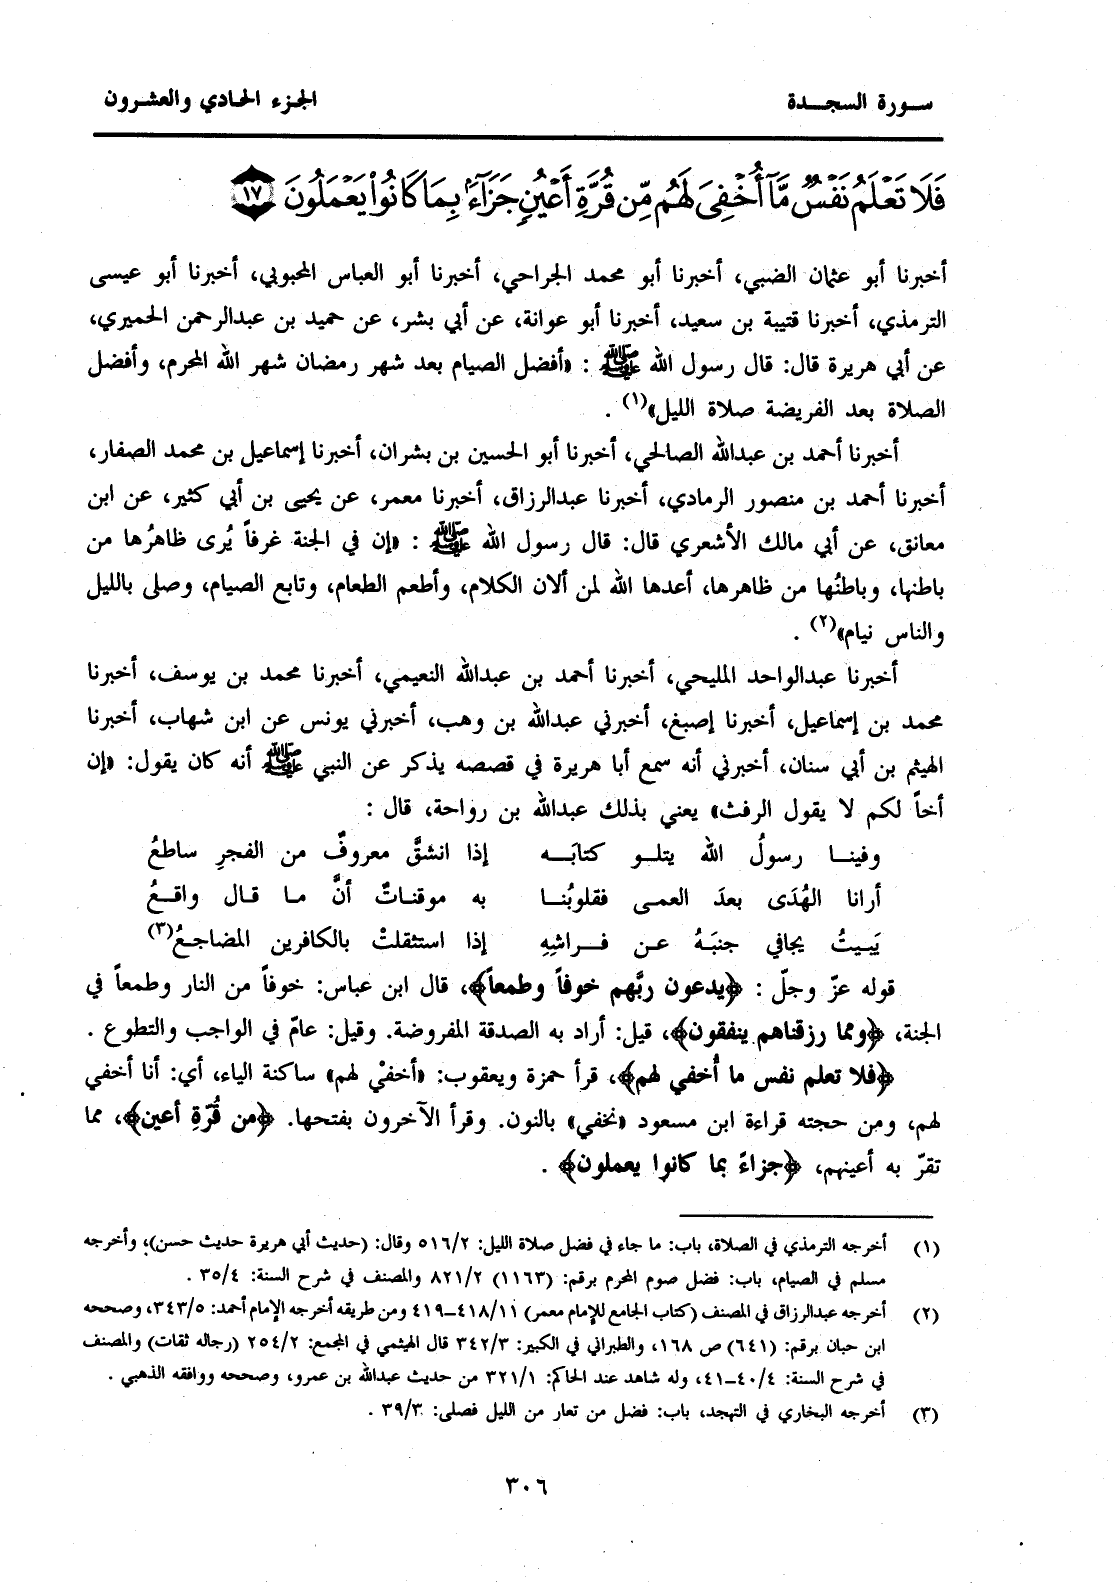 سورة السجدة
الجزء الحادي والعشرون
فَلَا تَعْلَمُ نَفْسٌ مَّآ أُخْفِىَ لَهُم مِّن قُرَّةِ أَعْيُنٍ جَزَآءًۢ بِمَا كَانُوا۟ يَعْمَلُونَ ١٧
أخبرنا أبو عثمان الضبي، أخبرنا أبو محمد الجراحي، أخبرنا أبو العباس المحبوبي، أخبرنا أبو عيسى
الترمذي، أخبرنا قتيبة بن سعيد، أخبرنا أبو عوانة، عن أبي بشر، عن حميد بن عبدالرحمن الحميري،
عن أبي هريرة قال: قال رسول الله ﷺ : «أفضل الصيام بعد شهر رمضان شهر الله المحرم، وأفضل
الصلاة بعد الفريضة صلاة الليل»(١) .
أخبرنا أحمد بن عبدالله الصالحي، أخبرنا أبو الحسين بن بشران، أخبرنا إسماعيل بن محمد الصفار،
أخبرنا أحمد بن منصور الرمادي، أخبرنا عبدالرزاق، أخبرنا معمر، عن يحيى بن أبي كثير، عن ابن
معانق، عن أبي مالك الأشعري قال: قال رسول الله ﷺ : «إن في الجنة غرفاً يُرى ظاهرُها من
باطنها، وباطنُها من ظاهرها، أعدها الله لمن ألان الكلام، وأطعم الطعام، وتابع الصيام، وصلى بالليل
والناس نيام»(٢) .
أخبرنا عبدالواحد المليحي، أخبرنا أحمد بن عبدالله النعيمي، أخبرنا محمد بن يوسف، أخبرنا
محمد بن إسماعيل، أخبرنا إصبغ، أخبرني عبدالله بن وهب، أخبرني يونس عن ابن شهاب، أخبرنا
الهيثم بن أبي سنان، أخبرني أنه سمع أبا هريرة في قصصه يذكر عن النبي ﷺ أنه كان يقول: «إن
أخاً لكم لا يقول الرفث» يعني بذلك عبدالله بن رواحة، قال :
وفينا رسولُ الله يتلو كتابَه إذا انشقَّ معروفٌ من الفجرِ ساطعُ
أرانا الهُدَى بعدَ العمى فقلوبُنا به موقناتٌ أنَّ ما قال واقعُ
يَبيتُ يجافي جنبَهُ عن فراشِهِ إذا استثقلتْ بالكافرين المضاجعُ(٣)
قوله عزّ وجلّ : ﴿يدعون ربَّهم خوفاً وطمعاً﴾، قال ابن عباس: خوفاً من النار وطمعاً في
الجنة، ﴿ومما رزقناهم ينفقون﴾، قيل: أراد به الصدقة المفروضة. وقيل: عامّ في الواجب والتطوع .
﴿فلا تعلم نفس ما أُخفي لهم﴾، قرأ حمزة ويعقوب: «أخفيْ لهم» ساكنة الياء، أي: أنا أخفي
لهم، ومن حجته قراءة ابن مسعود «نخفي» بالنون. وقرأ الآخرون بفتحها. ﴿من قُرّةِ أعين﴾، مما
تقرّ به أعينهم، ﴿جزاءً بما كانوا يعملون﴾ .
(١) أخرجه الترمذي في الصلاة، باب: ما جاء في فضل صلاة الليل: ٥١٦/٢ وقال: (حديث أبي هريرة حديث حسن)، وأخرجه
مسلم في الصيام، باب: فضل صوم المحرم برقم: (١١٦٣) ٨٢١/٢ والمصنف في شرح السنة: ٣٥/٤ .
(٢) أخرجه عبدالرزاق في المصنف (كتاب الجامع للإمام معمر) ٤١٨/١١–٤١٩ ومن طريقه أخرجه الإمام أحمد: ٣٤٣/٥، وصححه
ابن حبان برقم: (٦٤١) ص ١٦٨، والطبراني في الكبير: ٣٤٢/٣ قال الهيثمي في المجمع: ٢٥٤/٢ (رجاله ثقات) والمصنف
في شرح السنة: ٤٠/٤–٤١، وله شاهد عند الحاكم: ٣٢١/١ من حديث عبدالله بن عمرو، وصححه ووافقه الذهبي .
(٣) أخرجه البخاري في التهجد، باب: فضل من تعار من الليل فصلى: ٣٩/٣ .
٣٠٦